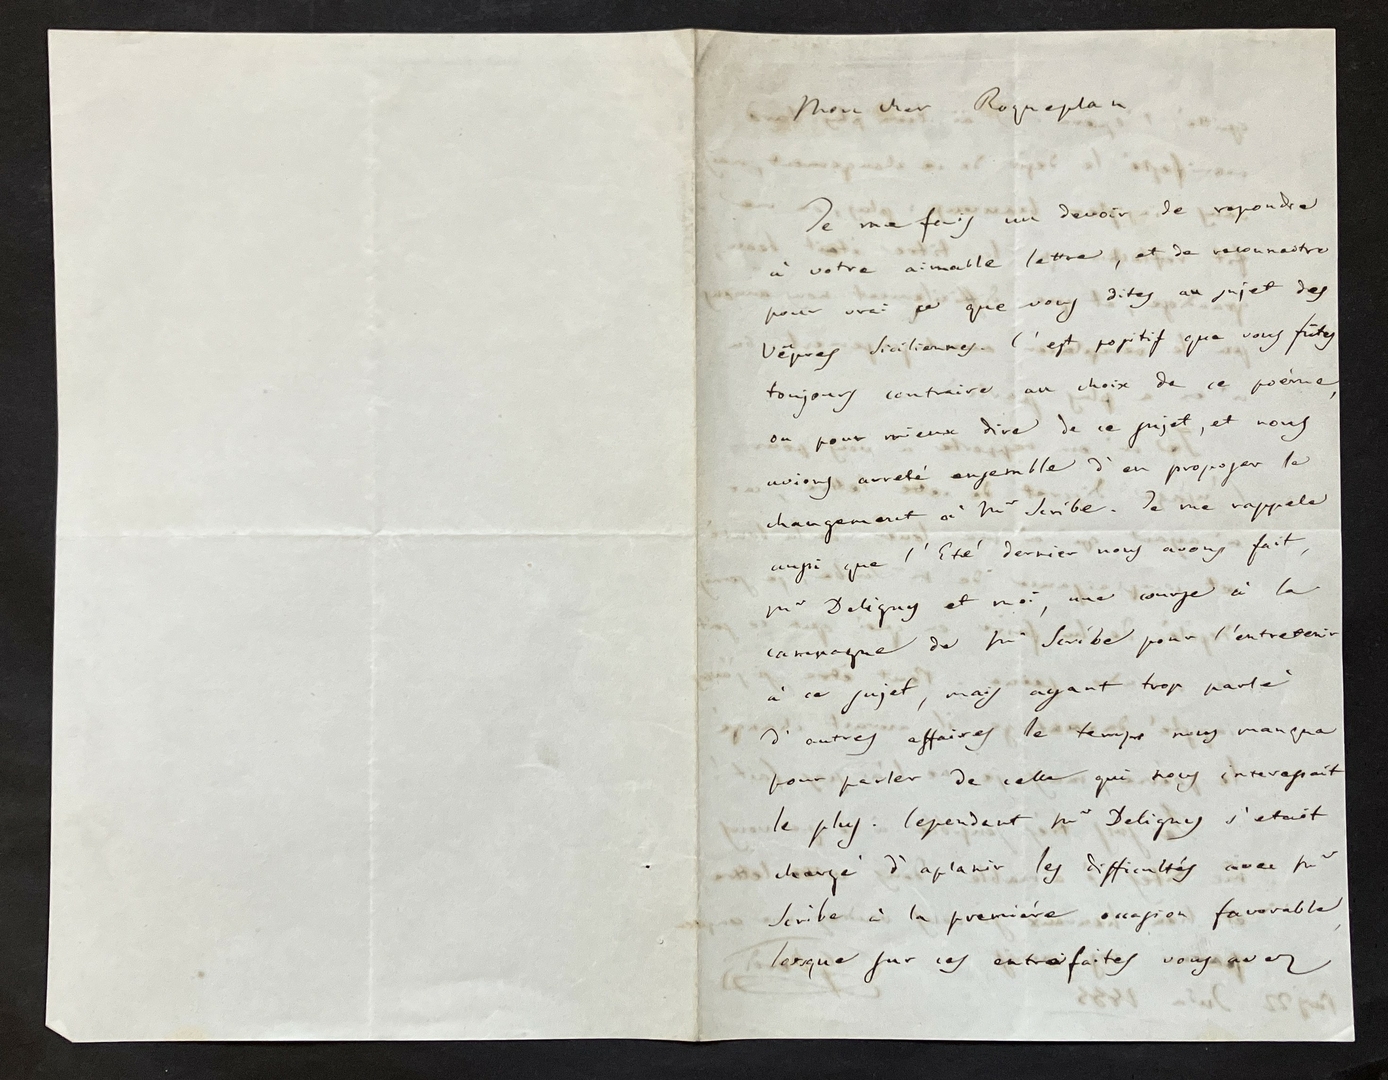 Mon cher Roqueplan
Je me fais un devoir de repondre
à votre aimable lettre, et de reconnaitre
pour vrai ce que vous dites au sujet des
Vêpres Siciliennes. C'est positif que vous fûtes
toujours contraire au choix de ce poéme,
ou pour mieux dire de ce sujet, et nous
avions arreté ensemble d'en proposer le
changement à Mr Scribe. Je me rappele
aussi que l'Eté dernier nous avons fait,
Mr Deligny et moi, une course à la
campagne de Mr Scribe pour l'entretenir
à ce sujet, mais ayant trop parlé
d'autres affaires le temps nous manqua
pour parler de celle qui nous interessait
le plus. Cependant Mr Deligny s'etait
chargé d'aplanir les difficultés avec Mr
Scribe à la première occasion favorable,
lorsque sur ces entrefaites vous avez